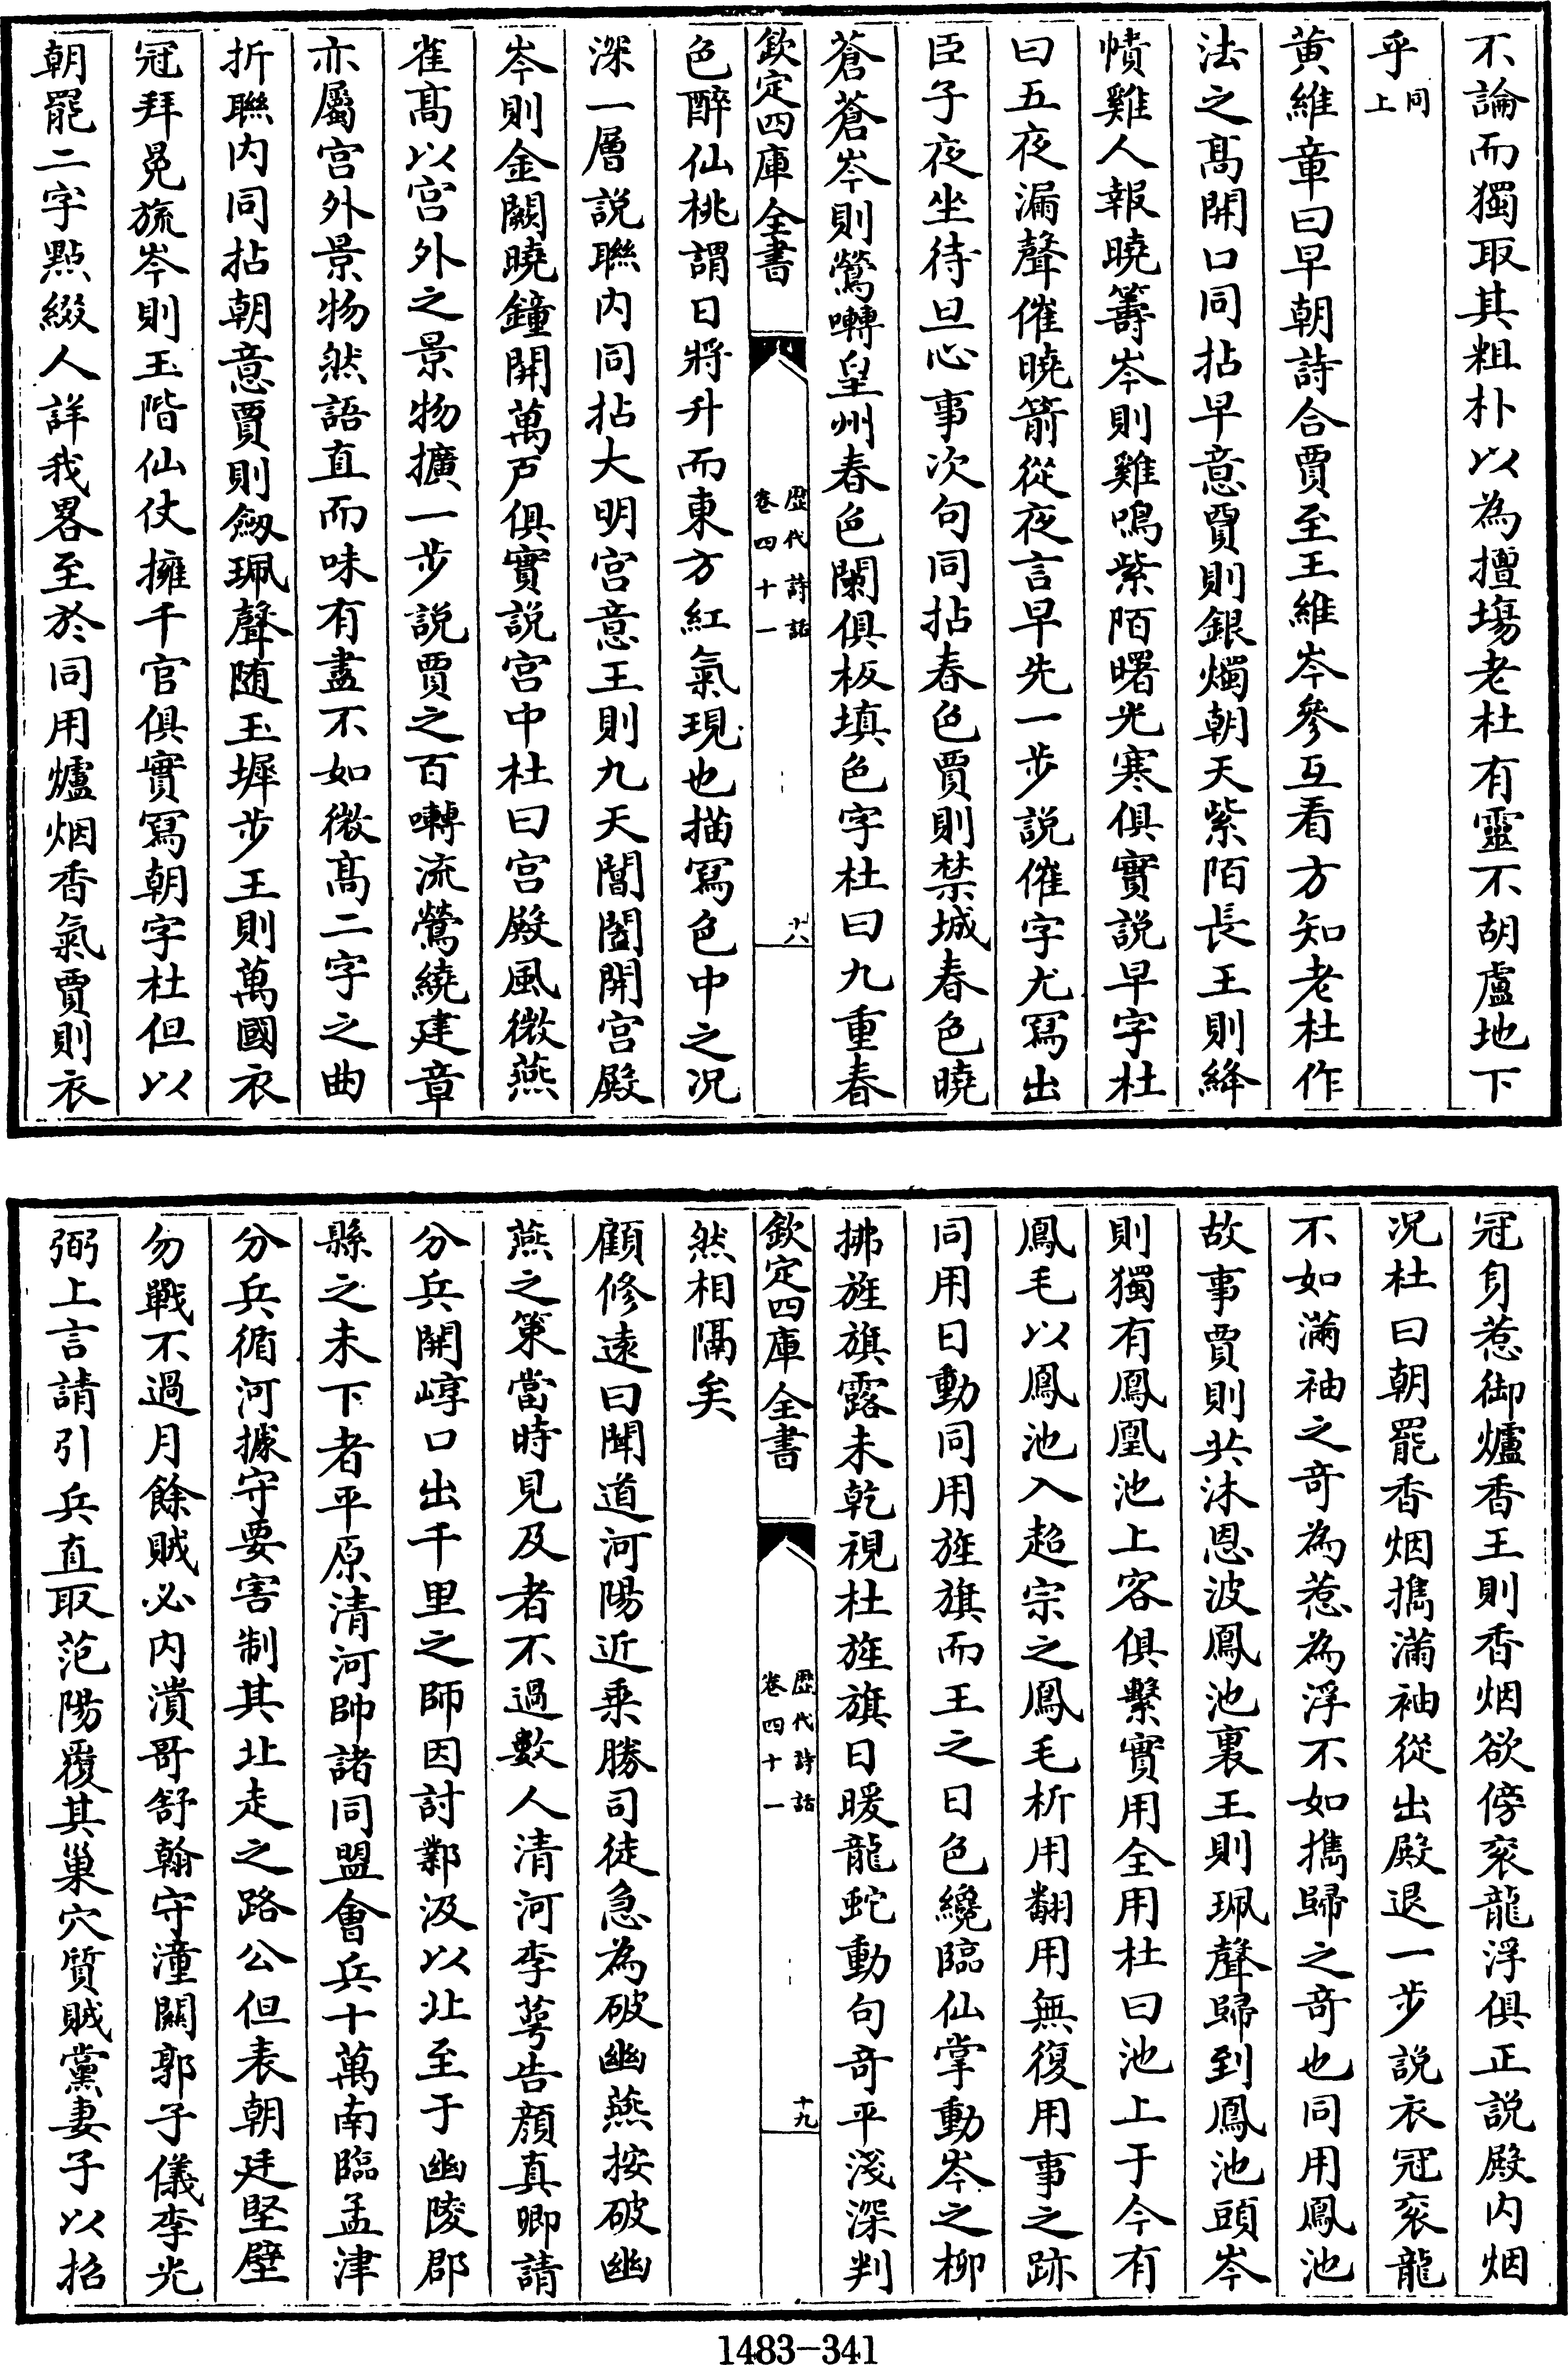 不論而獨取其粗朴以為擅塲老杜有靈不胡盧地下
乎同上
黄維章曰早朝詩合賈至王維岑參互看方知老杜作
法之髙開口同拈早意賈則銀燭朝天紫陌長王則絳
幘雞人報曉籌岑則雞鳴紫陌曙光寒俱實說早字杜
曰五夜漏聲催曉箭從夜言早先一步說催字尤冩出
臣子夜坐待旦心事次句同拈春色賈則禁城春色曉
蒼蒼岑則鶯囀皇州春色闌俱板填色字杜曰九重春
欽定四庫全書
歷代詩話
卷四十一
十八
色醉仙桃謂日將升而東方紅氣現也描冩色中之况
深一層說聯内同拈大明宫意王則九天閶闔開宫殿
岑則金闕曉鐘開萬戸俱實說宫中杜曰宫殿風微燕
雀髙以宫外之景物擴一步說賈之百囀流鶯繞建章
亦屬宫外景物然語直而味有盡不如微髙二字之曲
折聯内同拈朝意賈則劒珮聲随玉墀步王則萬國衣
冠拜冕旒岑則玉階仙仗擁千官俱實冩朝字杜但以
朝罷二字㸃綴人詳我畧至於同用爐烟香氣賈則衣
冠身惹御爐香王則香烟欲傍衮龍浮俱正說殿内烟
况杜曰朝罷香烟擕滿袖從出殿退一步說衣冠衮龍
不如滿袖之竒為惹為浮不如擕歸之竒也同用鳳池
故事賈則共沐恩波鳳池裏王則珮聲歸到鳳池頭岑
則獨有鳳凰池上客俱繫實用全用杜曰池上于今有
鳳毛以鳳池入超宗之鳳毛析用翻用無復用事之跡
同用日動同用旌旗而王之日色纔臨仙掌動岑之柳
拂旌旗露未乾視杜旌旗日暖龍蛇動句竒平淺深判
欽定四庫全書
歷代詩話
卷四十一
十九
然相隔矣
顧修遠曰聞道河陽近乗勝司徒急為破幽燕按破幽
燕之策當時見及者不過數人清河李萼告顔真卿請
分兵開崞口出千里之師因討鄴汲以北至于幽陵郡
縣之未下者平原清河帥諸同盟會兵十萬南臨孟津
分兵循河據守要害制其北走之路公但表朝廷堅壁
勿戰不過月餘賊必内潰哥舒翰守潼闗郭子儀李光
弼上言請引兵直取范陽覆其巢穴質賊黨妻子以招
1483-341